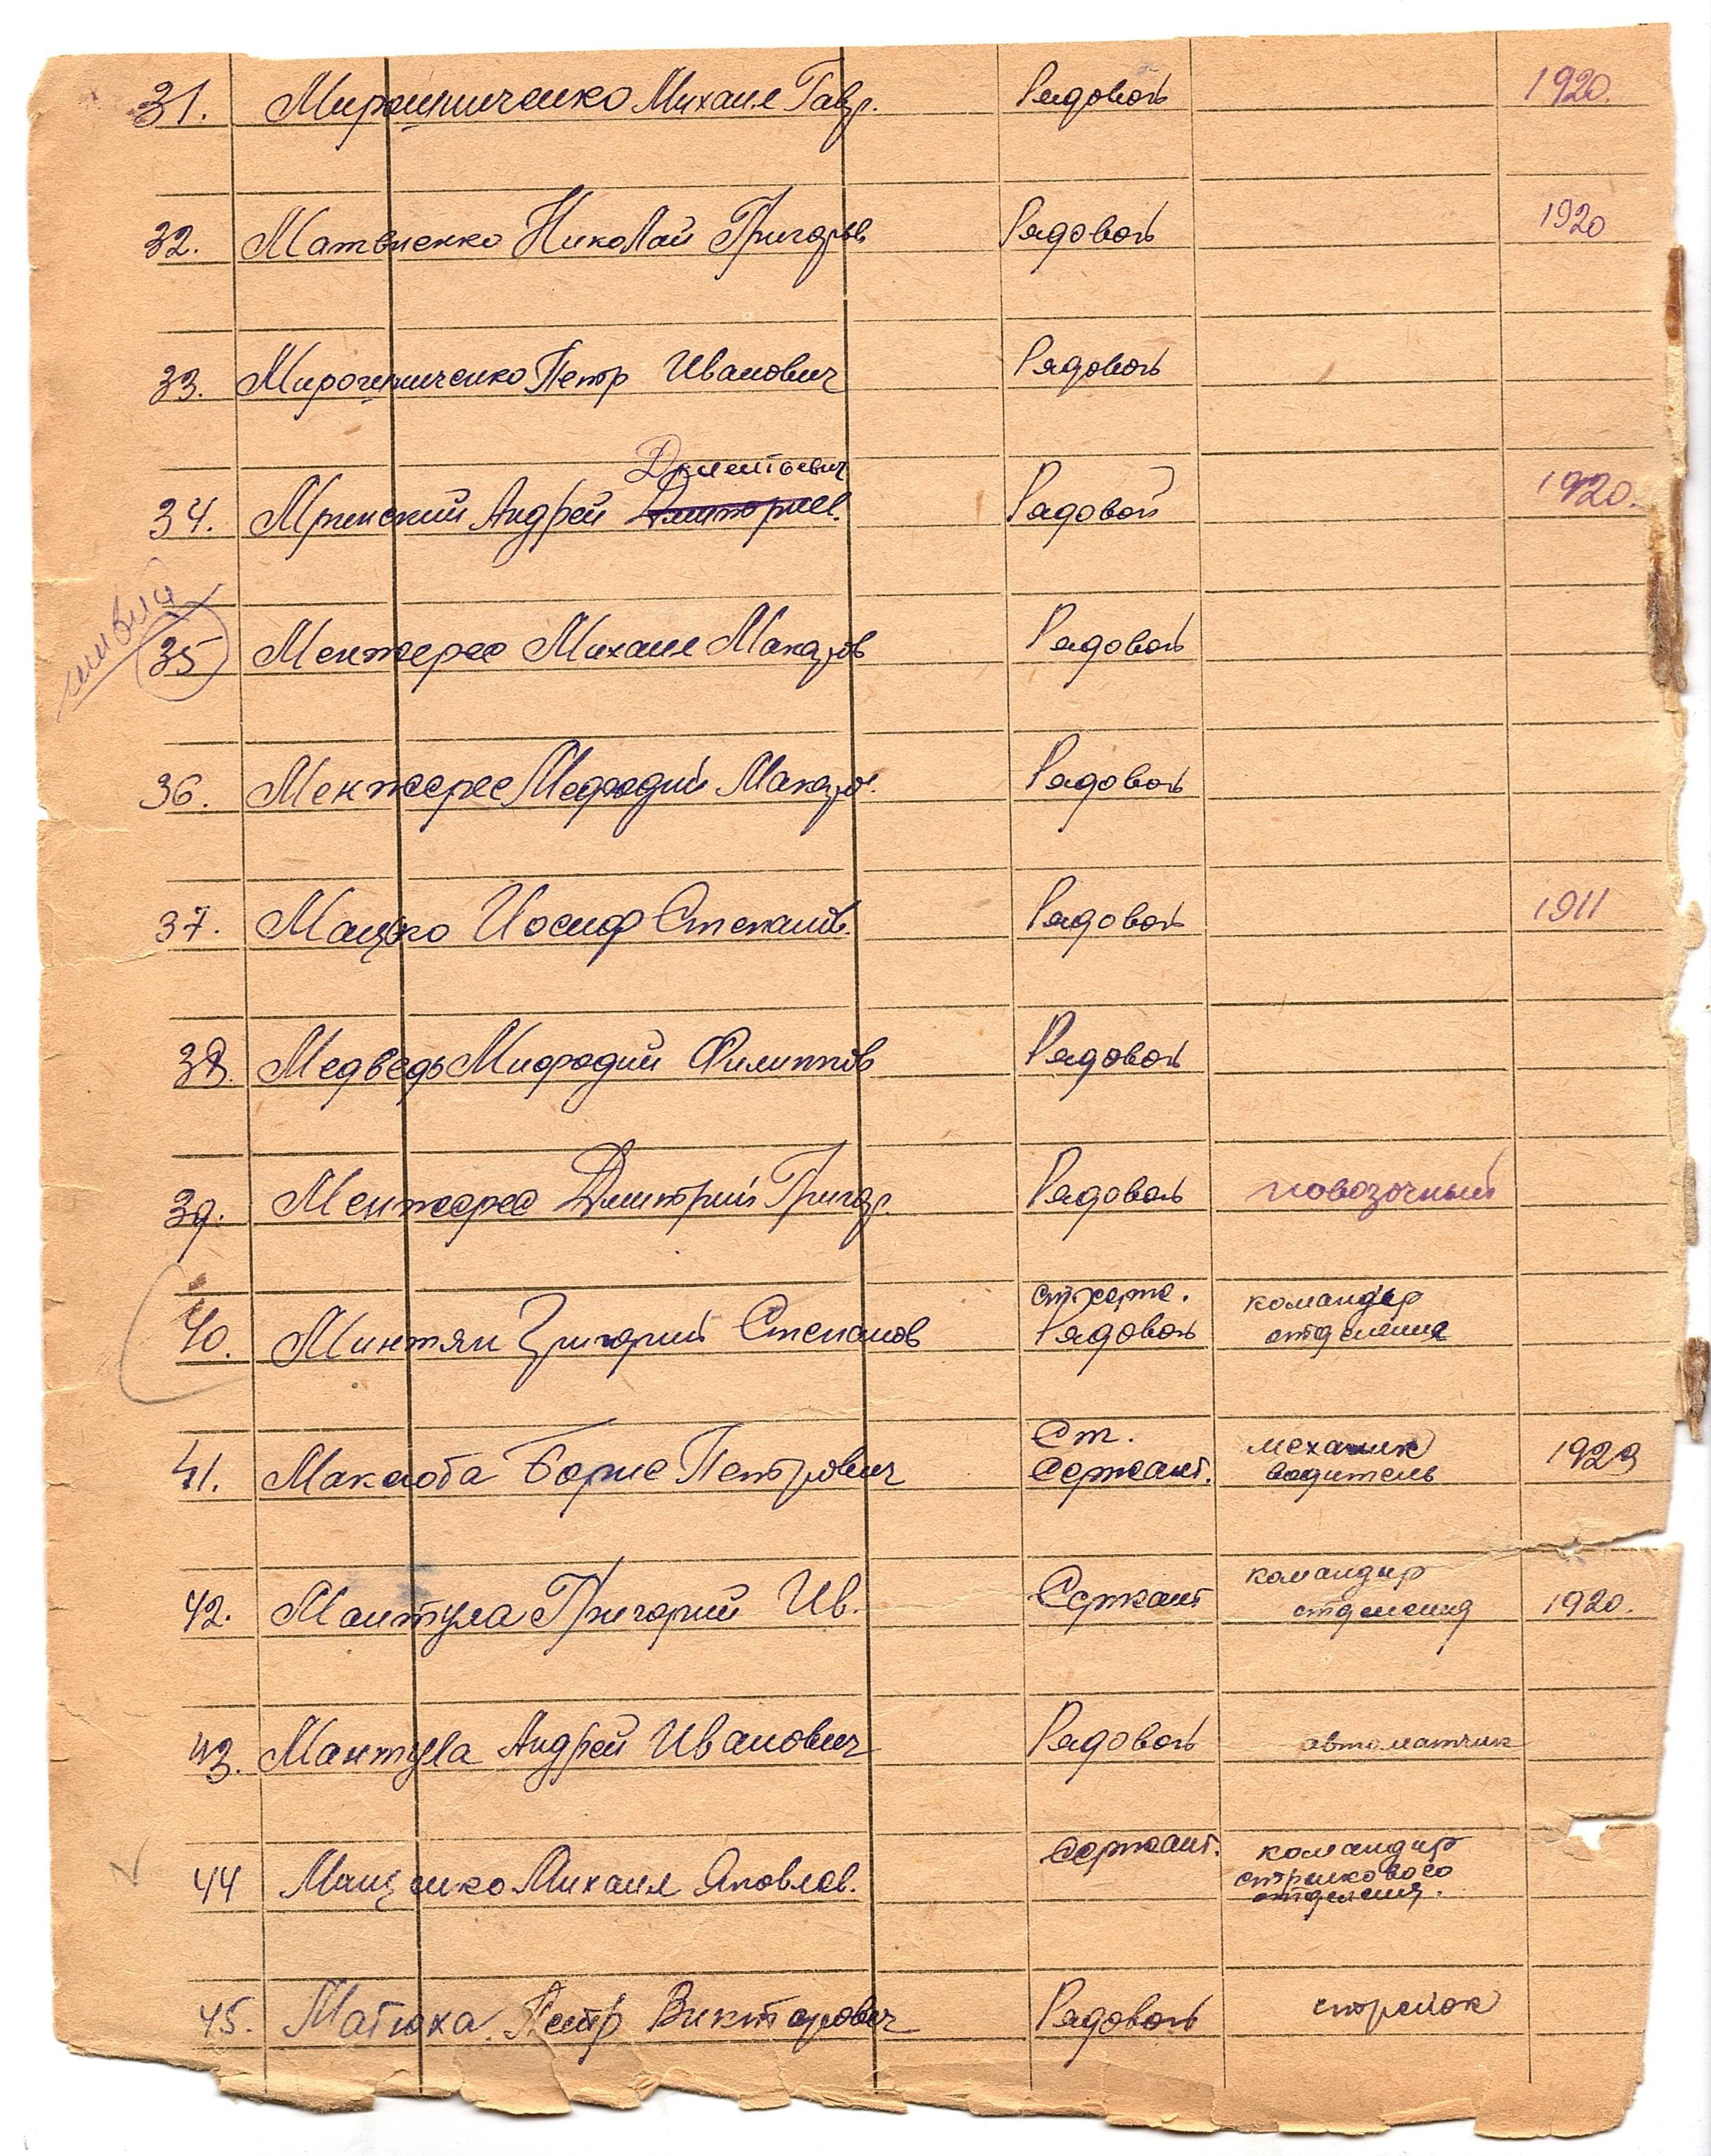 31. Мирошниченко Михаил Гавр. Рядовой 1920.
32. Матвиенко Николай Григорьев Рядовой 1920
33. Мирошниченко Петр Иванович Рядовой
Дементьевич
34. Мринский Андрей Дмитриев. Рядовой 1920.
живой
35 Менжерес Михаил Макаров Рядовой
36. Менжерес Мефодий Макаров. Рядовой
37. Мацько Иосиф Степанов. Рядовой 1911
38. Медведь Мифодий Филиппов Рядовой
39. Менжерес Дмитрий Григор. Рядовой повозочный
ст. серж. командир
40. Минтян Григорий Степанов Рядовой отделения
Ст. механик
41. Маклюба Борис Петрович Сержант. водитель 1923
командир
42. Мантула Григорий Ив. Сержант отделения 1920.
43. Мантула Андрей Иванович Рядовой автоматчик
Сержант. командир
стрелкового
44 Михаил Яковлев. отделения.
45. Матюха Петр Викторович Рядовой стрелок